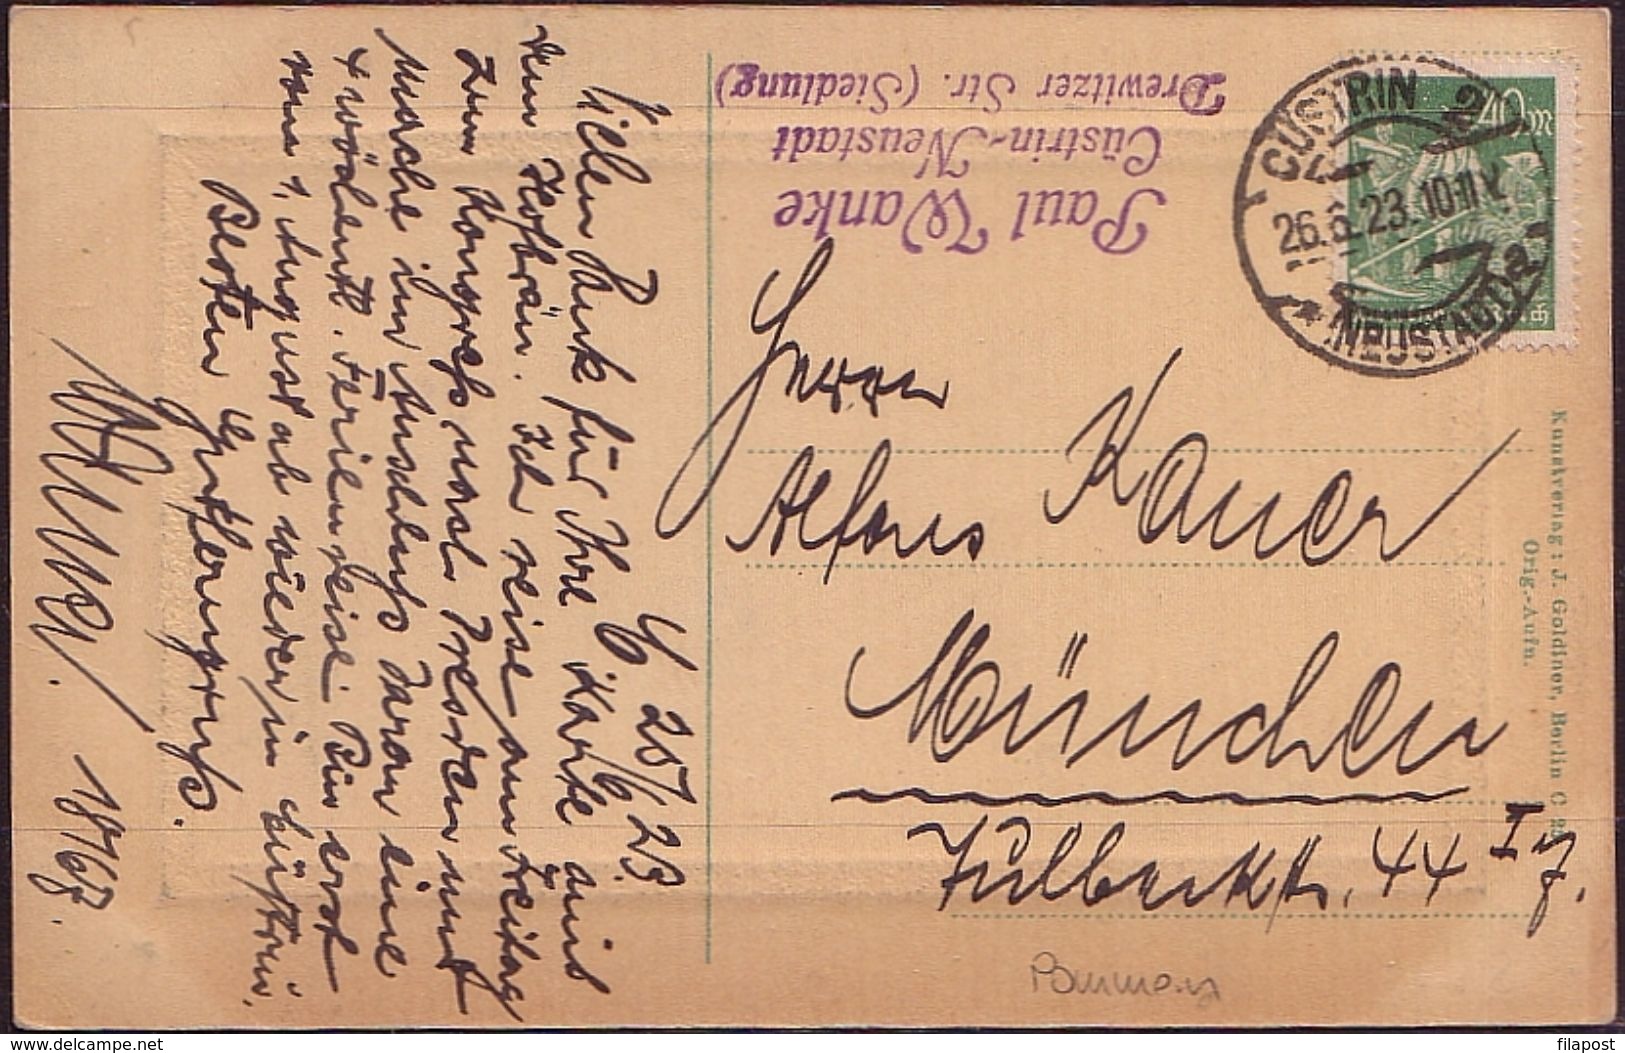 C. 25/6.23
Vielen Dank für Ihre Karte aus
dem Reise am Freitag
zum Kongress nach Dresden und
mache im Anschluss daran eine
4 wöchentl. Ferienreise. Bin erst
vom 1. August ab wieder in Cüstrin.
Besten
1876B.
Paul Wanke
Cüstrin-Neustadt
Drewitzer Str. (Siedlung)
CÜSTRIN 2
26.6.23. 10-11 V
* (NEUSTADT) a
40 M
Herrn
Alfons Kauer
München
44 I
Kunstverlag: J. Goldiner, Berlin C 25
Orig.-Aufn.
filapost
delcampe.net